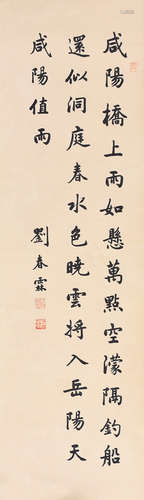 咸陽橋上雨如懸萬點空濛隔釣船
還似洞庭春水色曉雲將入岳陽天
咸陽值雨
劉春霖